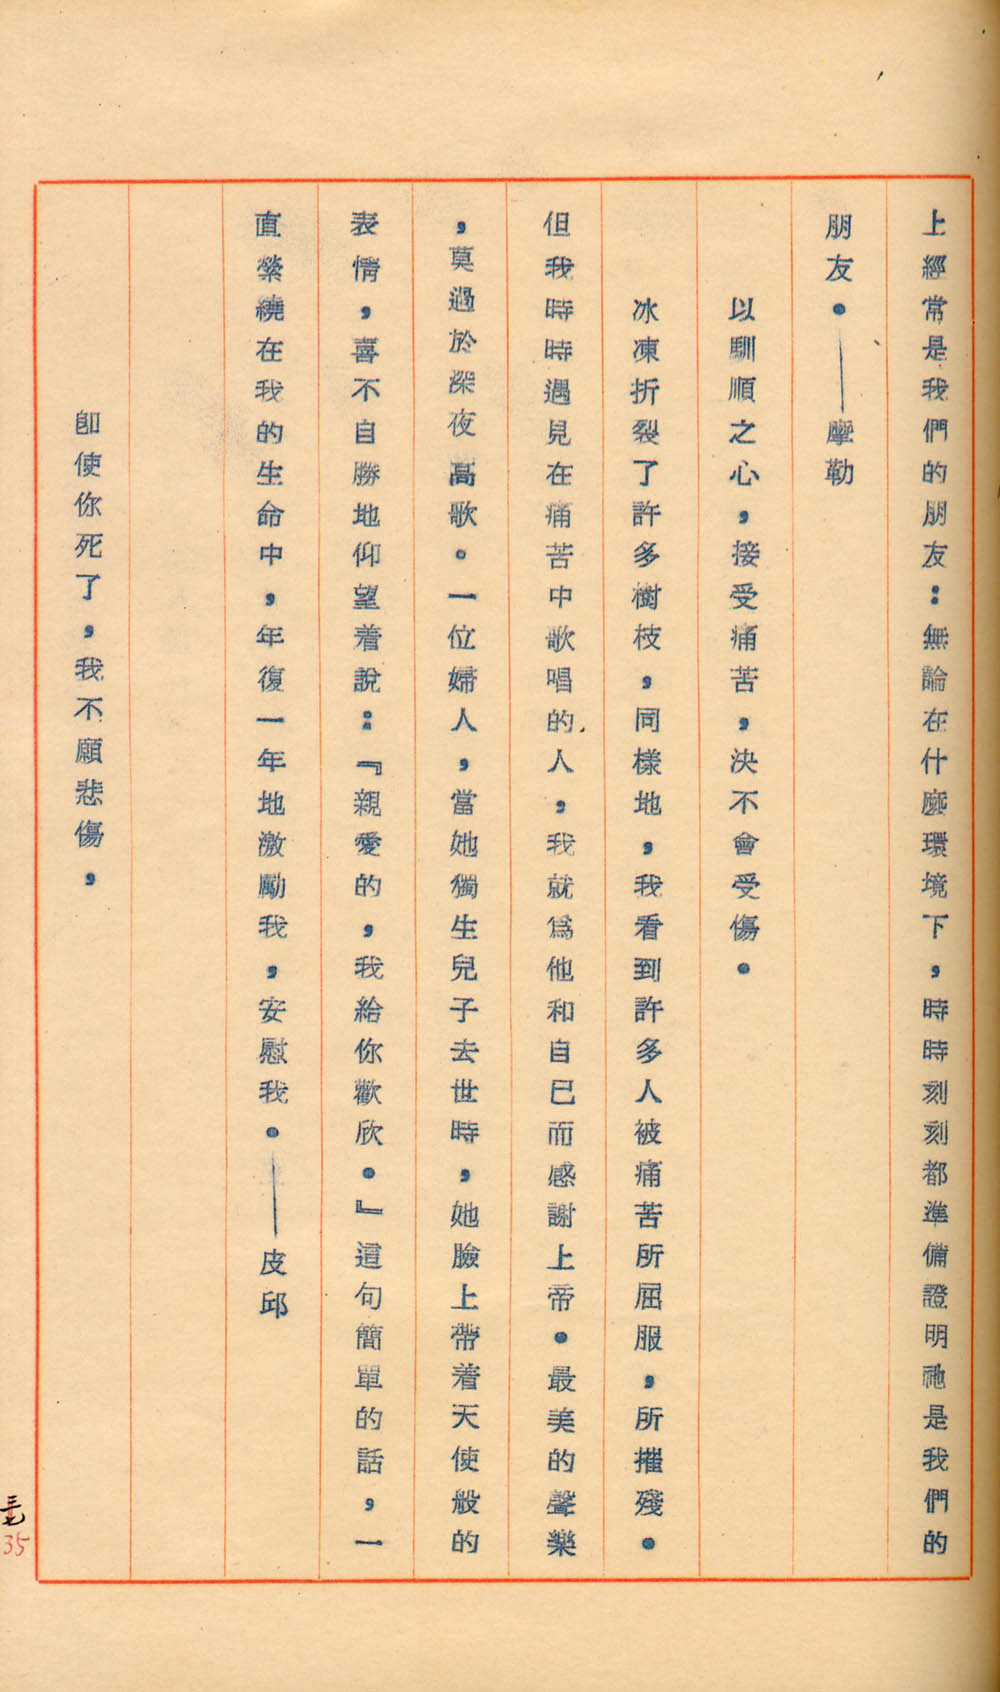 上經常是我們的朋友：無論在什麼環境下，時時刻刻都準備證明祂是我們的
朋友。——摩勒
以馴順之心，接受痛苦，決不會受傷。
冰凍折裂了許多樹枝，同樣地，我看到許多人被痛苦所屈服，所摧殘。
但我時時遇見在痛苦中歌唱的人，我就爲他和自己而感謝上帝。最美的聲樂
，莫過於深夜高歌。一位婦人，當她獨生兒子去世時，她臉上帶着天使般的
表情，喜不自勝地仰望着說：『親愛的，我給你歡欣。』這句簡單的話，一
直縈繞在我的生命中，年復一年地激勵我，安慰我。——皮邱
卽使你死了，我不願悲傷，
35